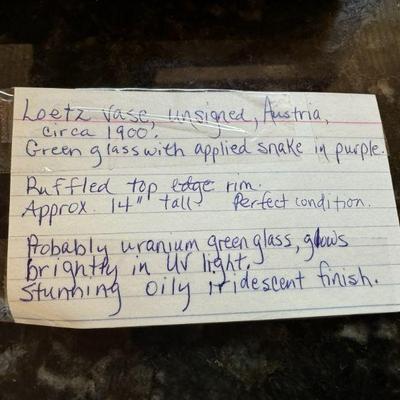 Loetz vase, unsigned, Austria,
circa 1900.
Green glass with applied snake in purple.
Ruffled top edge rim.
Approx. 14" tall Perfect condition.
Probably uranium green glass, glows
brightly in UV light.
Stunning oily iridescent finish.